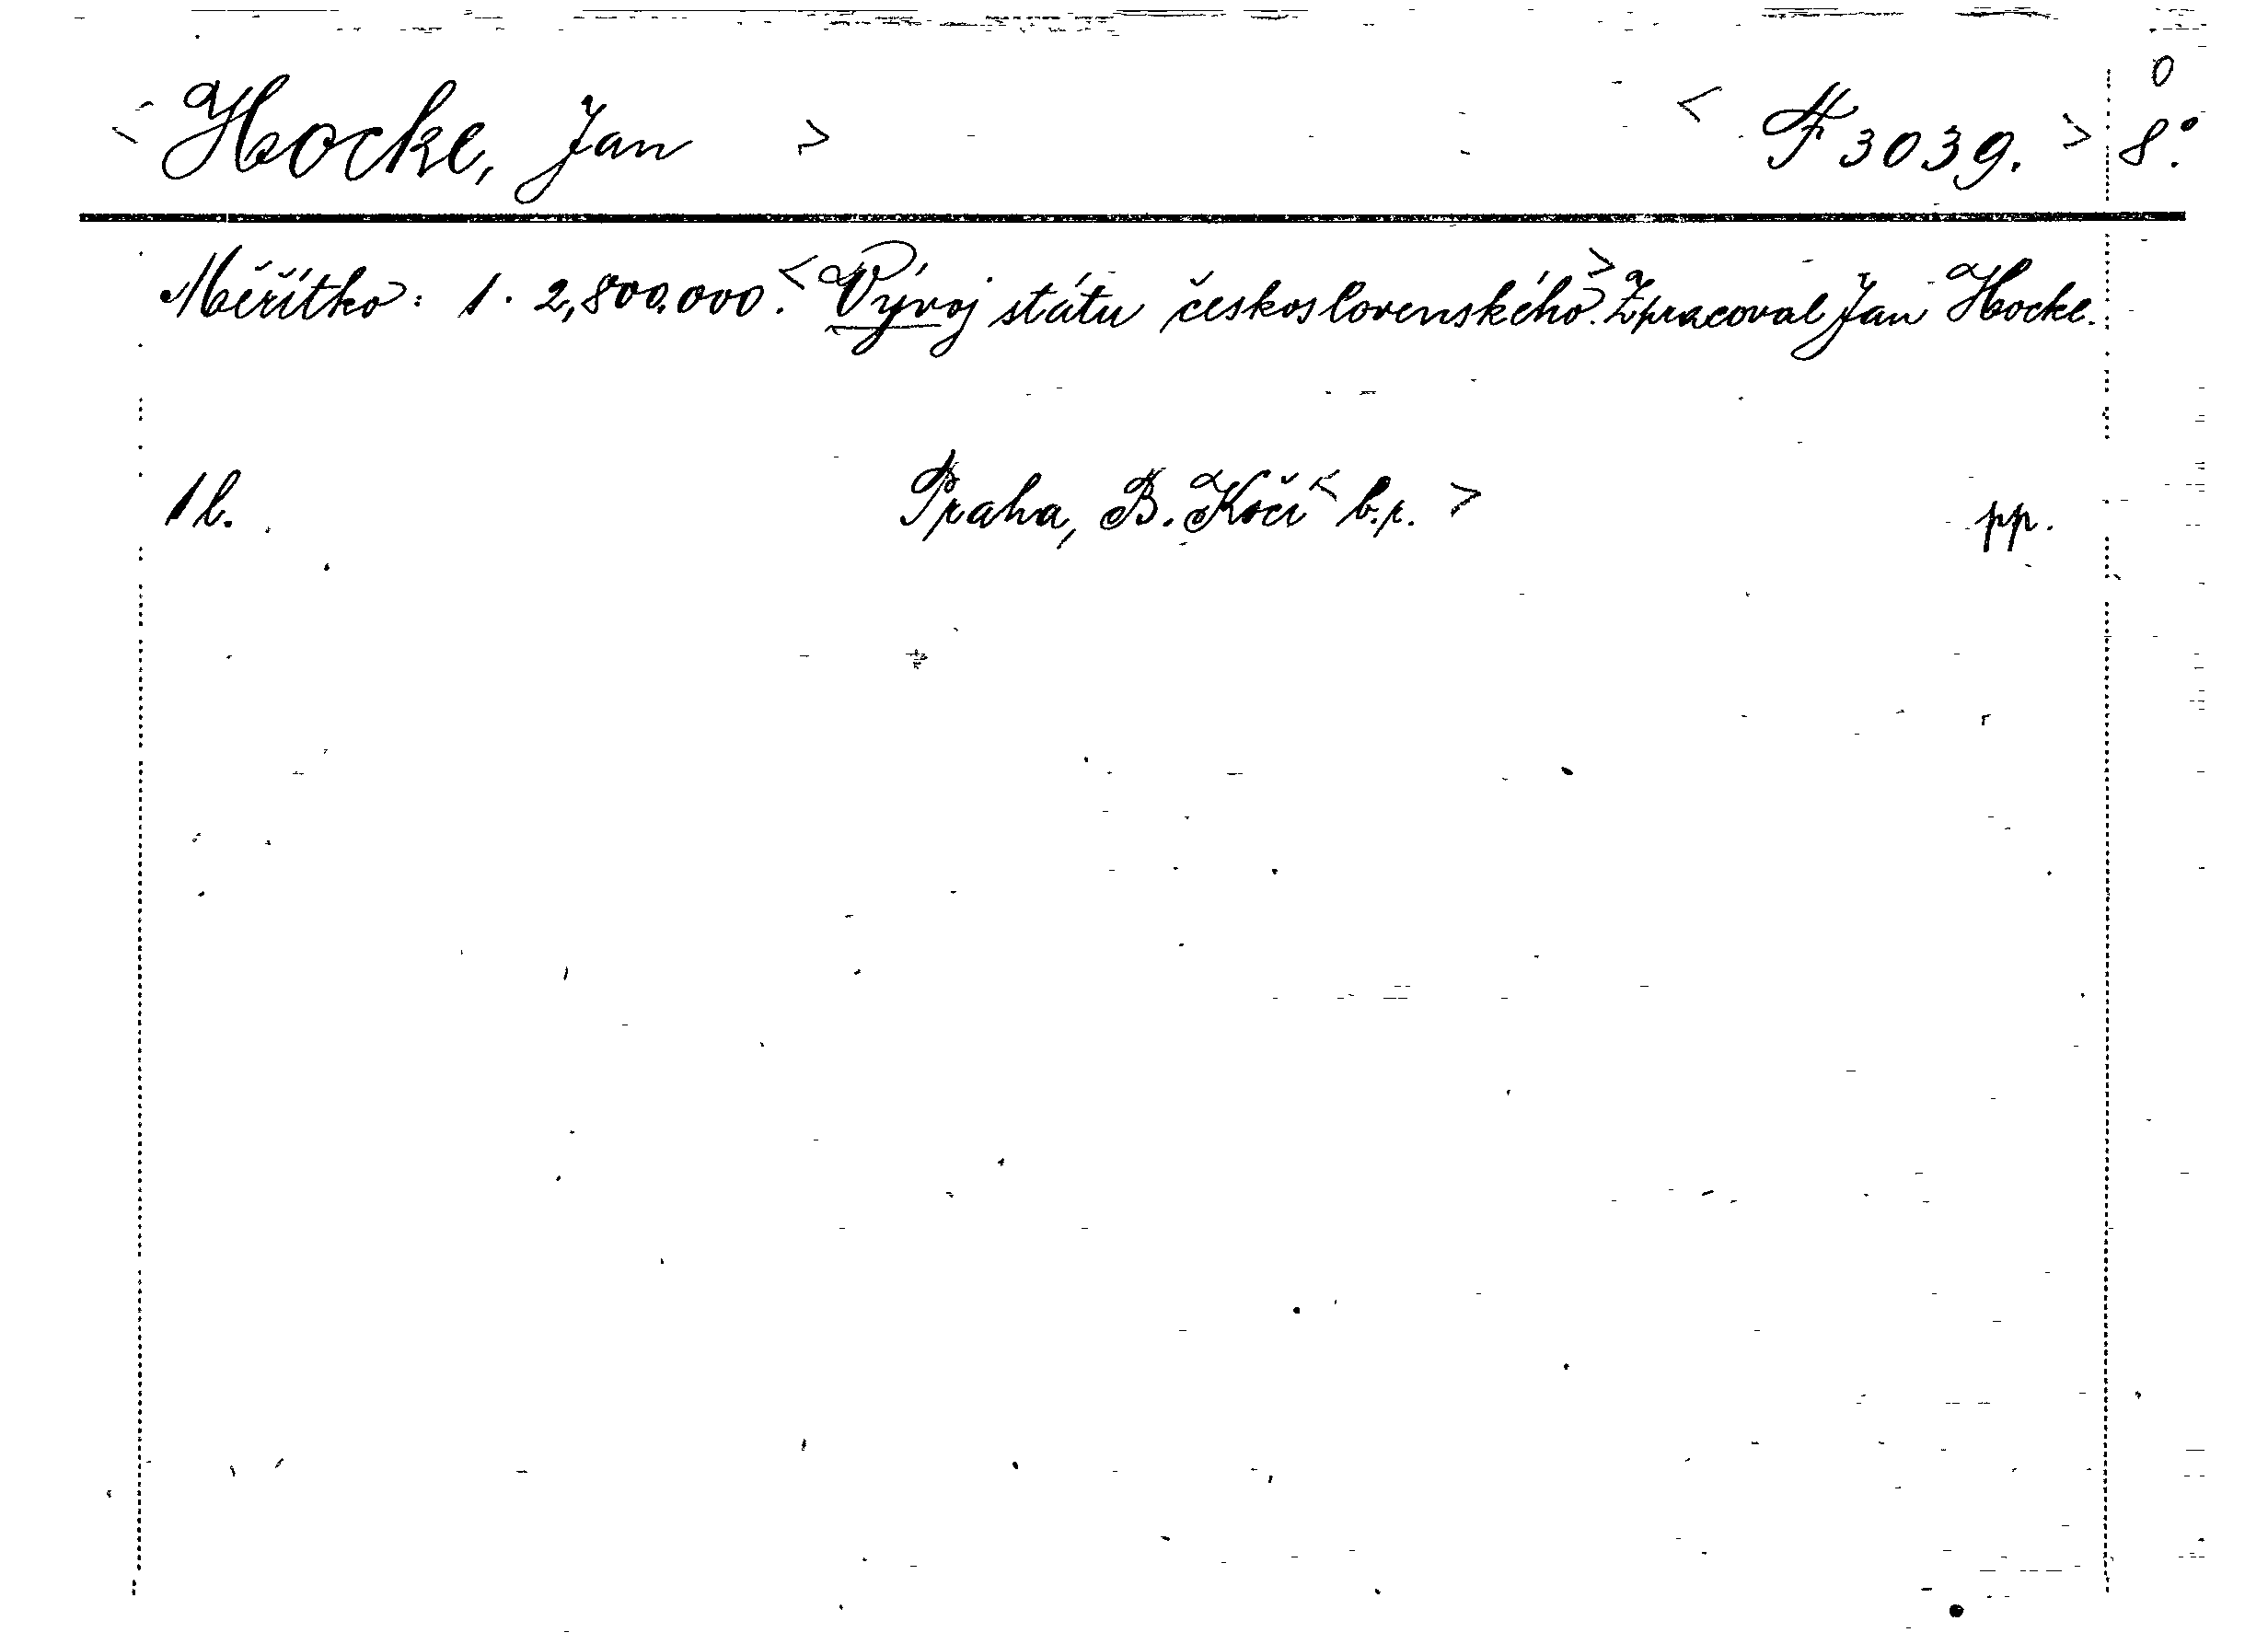 0
< Hocke, Jan > < F 3039. > 8°.
Měřítko: 1 : 2,800.000. < Vývoj státu československého. > Zpracoval Jan Hocke.
1 l. Praha, B. Kočí < b.r. > pp.